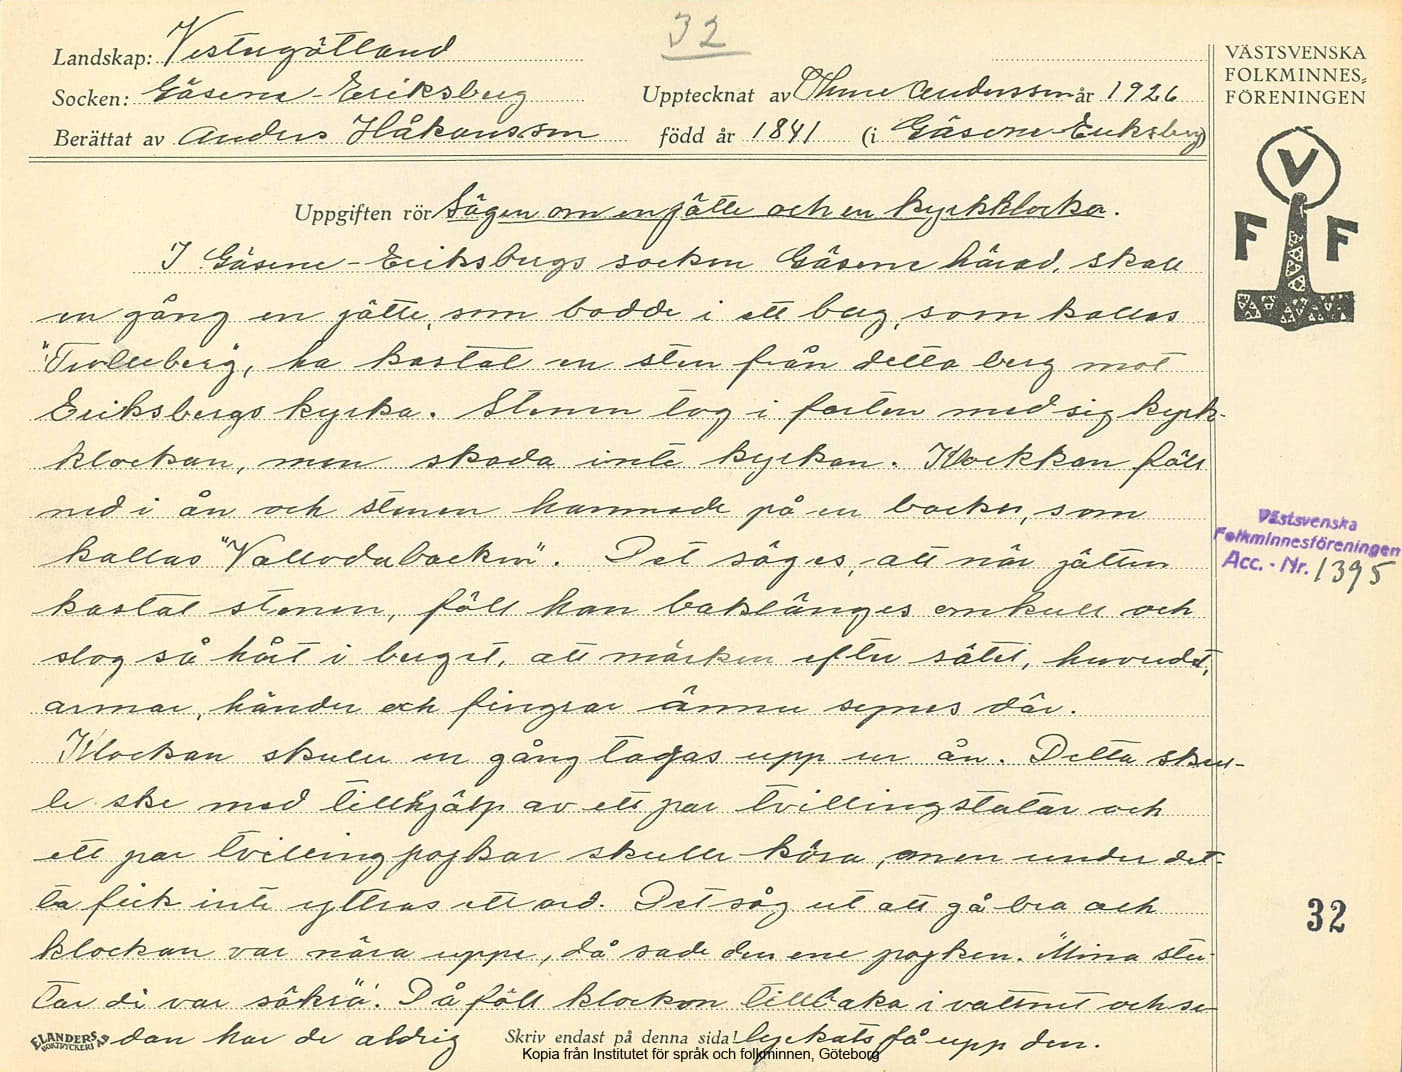 32
Landskap: Vestergötland
Socken: Gäsene-Eriksberg
Upptecknat av Thure Andersson år 1926
Berättat av Anders Håkansson född år 1841 (i Gäsene-Eriksberg)
VÄSTSVENSKA
FOLKMINNES=
FÖRENINGEN
V
F F
Uppgiften rör Sägen om en jätte och en kyrkklocka.
I Gäsene-Eriksbergs socken Gäsene härad, skall
en gång en jätte, som bodde i ett berg, som kallas
"Trolleberg", ha kastat en sten från detta berg mot
Eriksbergs kyrka. Stenen tog i farten med sig kyrk-
klockan, men skada inte kyrkan. Klockkan föll
ned i ån och stenen hamnade på en backe, som
kallas "Vallodabacken". Det säges, att när jätten
kastat stenen, föll han baklänges omkull och
slog så hårt i berget, att märken efter sätet, huvudet,
armar, händer och fingrar ännu synes där.
Klockan skulle en gång tagas upp ur ån. Detta skul-
le ske med tillhjälp av ett par tvillingstutar och
ett par tvillingpojkar skulle köra, men under det-
ta fick inte yttras ett ord. Det såg ut att gå bra och
klockan var nära uppe, då sade den ene pojken. "Mina stu-
tar di var säkrä". Då föll klockan tillbaka i vattnet och se-
dan har de aldrig lyckats få upp den.
Västsvenska
Folkminnesföreningen
Acc. - Nr. 1395
32
ELANDERS
BOKTRYCKERI AB
Skriv endast på denna sida!
Kopia från Institutet för språk och folkminnen, Göteborg